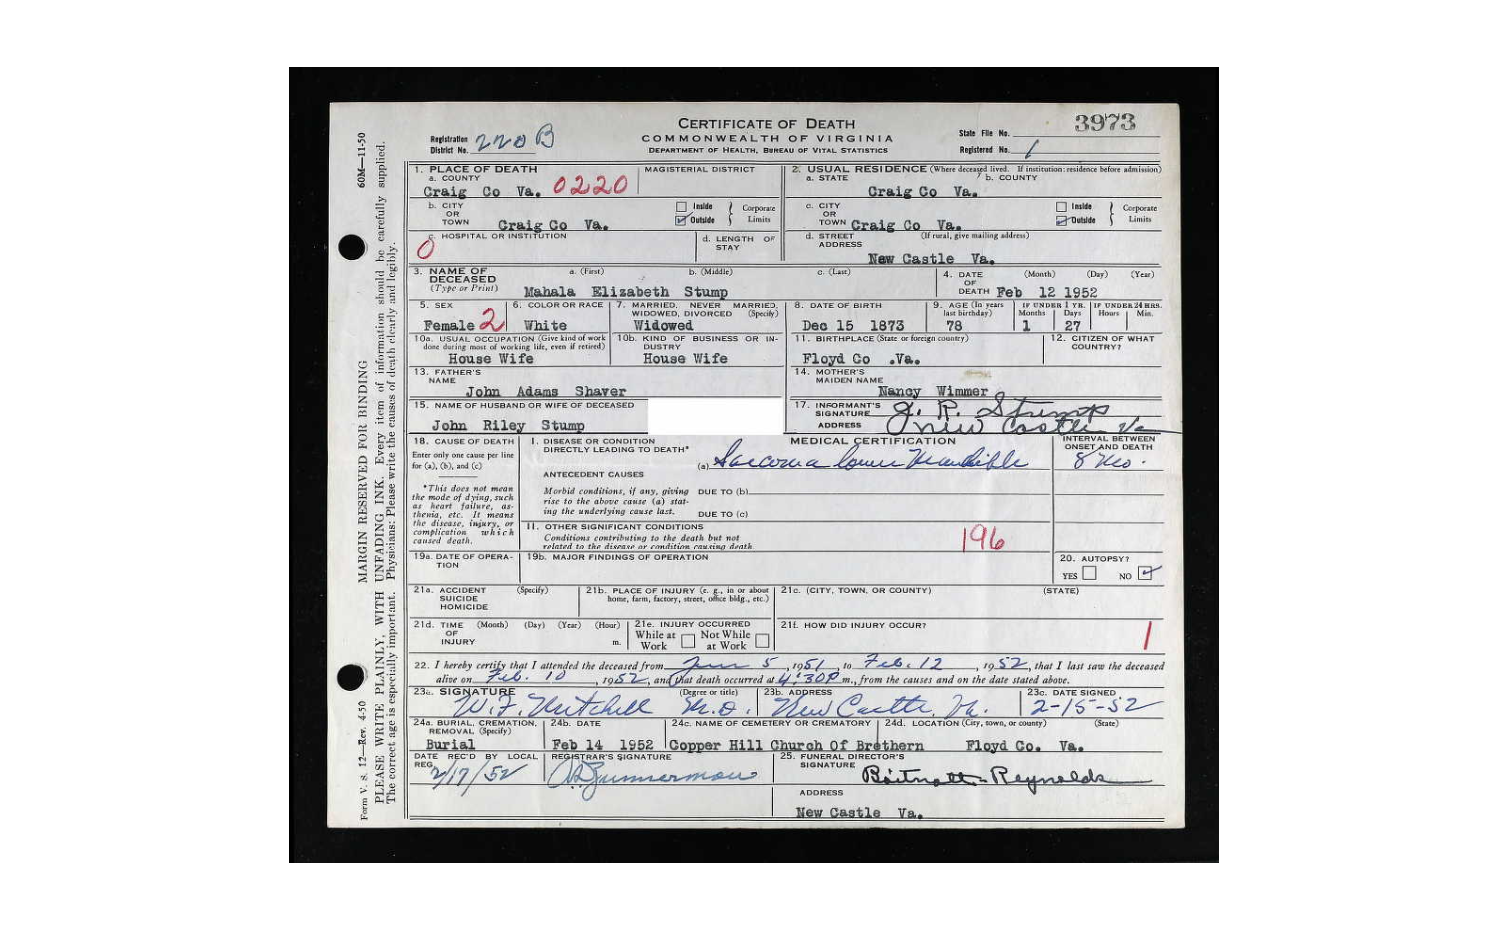 CERTIFICATE OF DEATH
COMMONWEALTH OF VIRGINIA
DEPARTMENT OF HEALTH, BUREAU OF VITAL STATISTICS
Registration District No. 220 B
State File No. 3973
Registered No. 1
60M—11-50
Form V. S. 12—Rev. 4-50
MARGIN RESERVED FOR BINDING
PLEASE WRITE PLAINLY, WITH UNFADING INK. Every item of information should be carefully supplied.
The correct age is especially important. Physicians: Please write the causes of death clearly and legibly.
1. PLACE OF DEATH
a. COUNTY
Craig Co Va. 0220
MAGISTERIAL DISTRICT
2. USUAL RESIDENCE (Where deceased lived. If institution: residence before admission)
a. STATE b. COUNTY
Craig Co Va.
b. CITY OR TOWN Craig Co Va.
Inside Outside Corporate Limits
c. CITY OR TOWN Craig Co Va.
Inside Outside Corporate Limits
c. HOSPITAL OR INSTITUTION
0
d. LENGTH OF STAY
d. STREET ADDRESS (If rural, give mailing address)
New Castle Va.
3. NAME OF DECEASED (Type or Print)
a. (First) b. (Middle) c. (Last)
Mahala Elizabeth Stump
4. DATE OF DEATH (Month) (Day) (Year)
Feb 12 1952
5. SEX
Female 2
6. COLOR OR RACE
White
7. MARRIED, NEVER MARRIED, WIDOWED, DIVORCED (Specify)
Widowed
8. DATE OF BIRTH
Dec 15 1873
9. AGE (In years last birthday)
78
IF UNDER 1 YR. Months Days
1 27
IF UNDER 24 HRS. Hours Min.
10a. USUAL OCCUPATION (Give kind of work done during most of working life, even if retired)
House Wife
10b. KIND OF BUSINESS OR INDUSTRY
House Wife
11. BIRTHPLACE (State or foreign country)
Floyd Co .Va.
12. CITIZEN OF WHAT COUNTRY?
13. FATHER'S NAME
John Adams Shaver
14. MOTHER'S MAIDEN NAME
Nancy Wimmer
15. NAME OF HUSBAND OR WIFE OF DECEASED
John Riley Stump
17. INFORMANT'S SIGNATURE J. R. Stump
ADDRESS New Castle Va
18. CAUSE OF DEATH
Enter only one cause per line for (a), (b), and (c)
*This does not mean the mode of dying, such as heart failure, asthenia, etc. It means the disease, injury, or complication which caused death.
MEDICAL CERTIFICATION
I. DISEASE OR CONDITION DIRECTLY LEADING TO DEATH*
(a) Sarcoma lower Mandible
INTERVAL BETWEEN ONSET AND DEATH
8 Mo.
ANTECEDENT CAUSES
Morbid conditions, if any, giving rise to the above cause (a) stating the underlying cause last.
DUE TO (b)
DUE TO (c)
II. OTHER SIGNIFICANT CONDITIONS
Conditions contributing to the death but not related to the disease or condition causing death
196
19a. DATE OF OPERATION
19b. MAJOR FINDINGS OF OPERATION
20. AUTOPSY?
YES NO
21a. ACCIDENT SUICIDE HOMICIDE (Specify)
21b. PLACE OF INJURY (e. g., in or about home, farm, factory, street, office bldg., etc.)
21c. (CITY, TOWN, OR COUNTY) (STATE)
21d. TIME OF INJURY (Month) (Day) (Year) (Hour) m.
21e. INJURY OCCURRED
While at Work Not While at Work
21f. HOW DID INJURY OCCUR?
1
22. I hereby certify that I attended the deceased from 5, 1951, to Feb. 12, 1952, that I last saw the deceased
alive on Feb. 10, 1952, and that death occurred at 4:30P m., from the causes and on the date stated above.
23a. SIGNATURE (Degree or title)
W. F. Mitchell M.D.
23b. ADDRESS
New Castle, Va.
23c. DATE SIGNED
2-15-52
24a. BURIAL, CREMATION, REMOVAL (Specify)
Burial
24b. DATE
Feb 14 1952
24c. NAME OF CEMETERY OR CREMATORY
Copper Hill Church Of Brethern
24d. LOCATION (City, town, or county) (State)
Floyd Co. Va.
DATE REC'D BY LOCAL REG.
2/17/52
REGISTRAR'S SIGNATURE
25. FUNERAL DIRECTOR'S SIGNATURE
Boitnott - Reynolds
ADDRESS
New Castle Va.